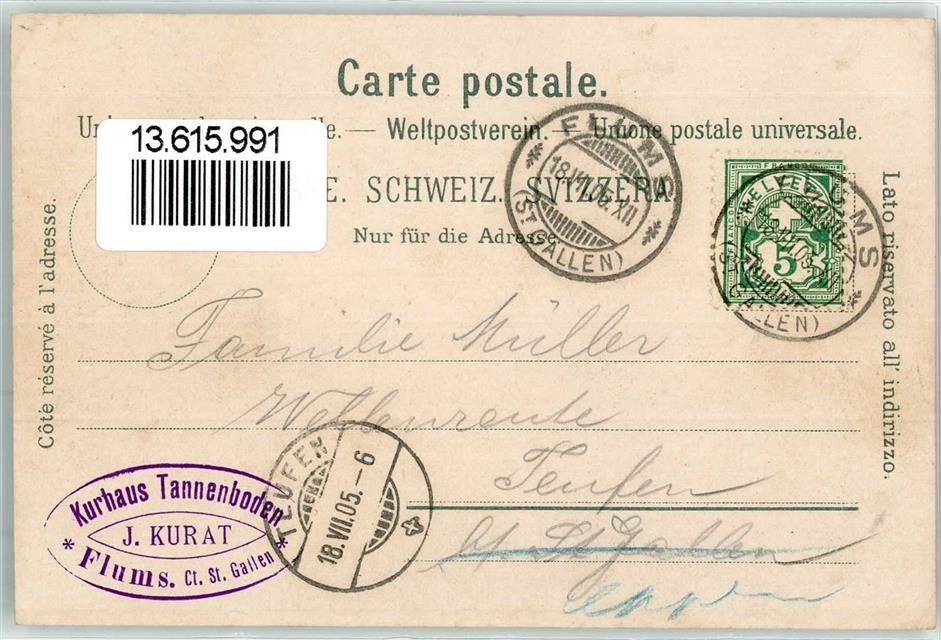 Carte postale.
13.615.991
Weltpostverein. — Unione postale universale.
E. SCHWEIZ. SVIZZERA.
Nur für die Adresse.
Côté réservé à l'adresse.
Lato riservato all' indirizzo.
FLUMS
(ST. GALLEN)
FRANCO
HELVETIA
5
FLUMS
(ST. GALLEN)
Familie Müller
Teufen
Ct. St Gallen
TEUFEN
18.VII.05.-6
Kurhaus Tannenboden
J. KURAT
* Flums. Ct. St. Gallen *